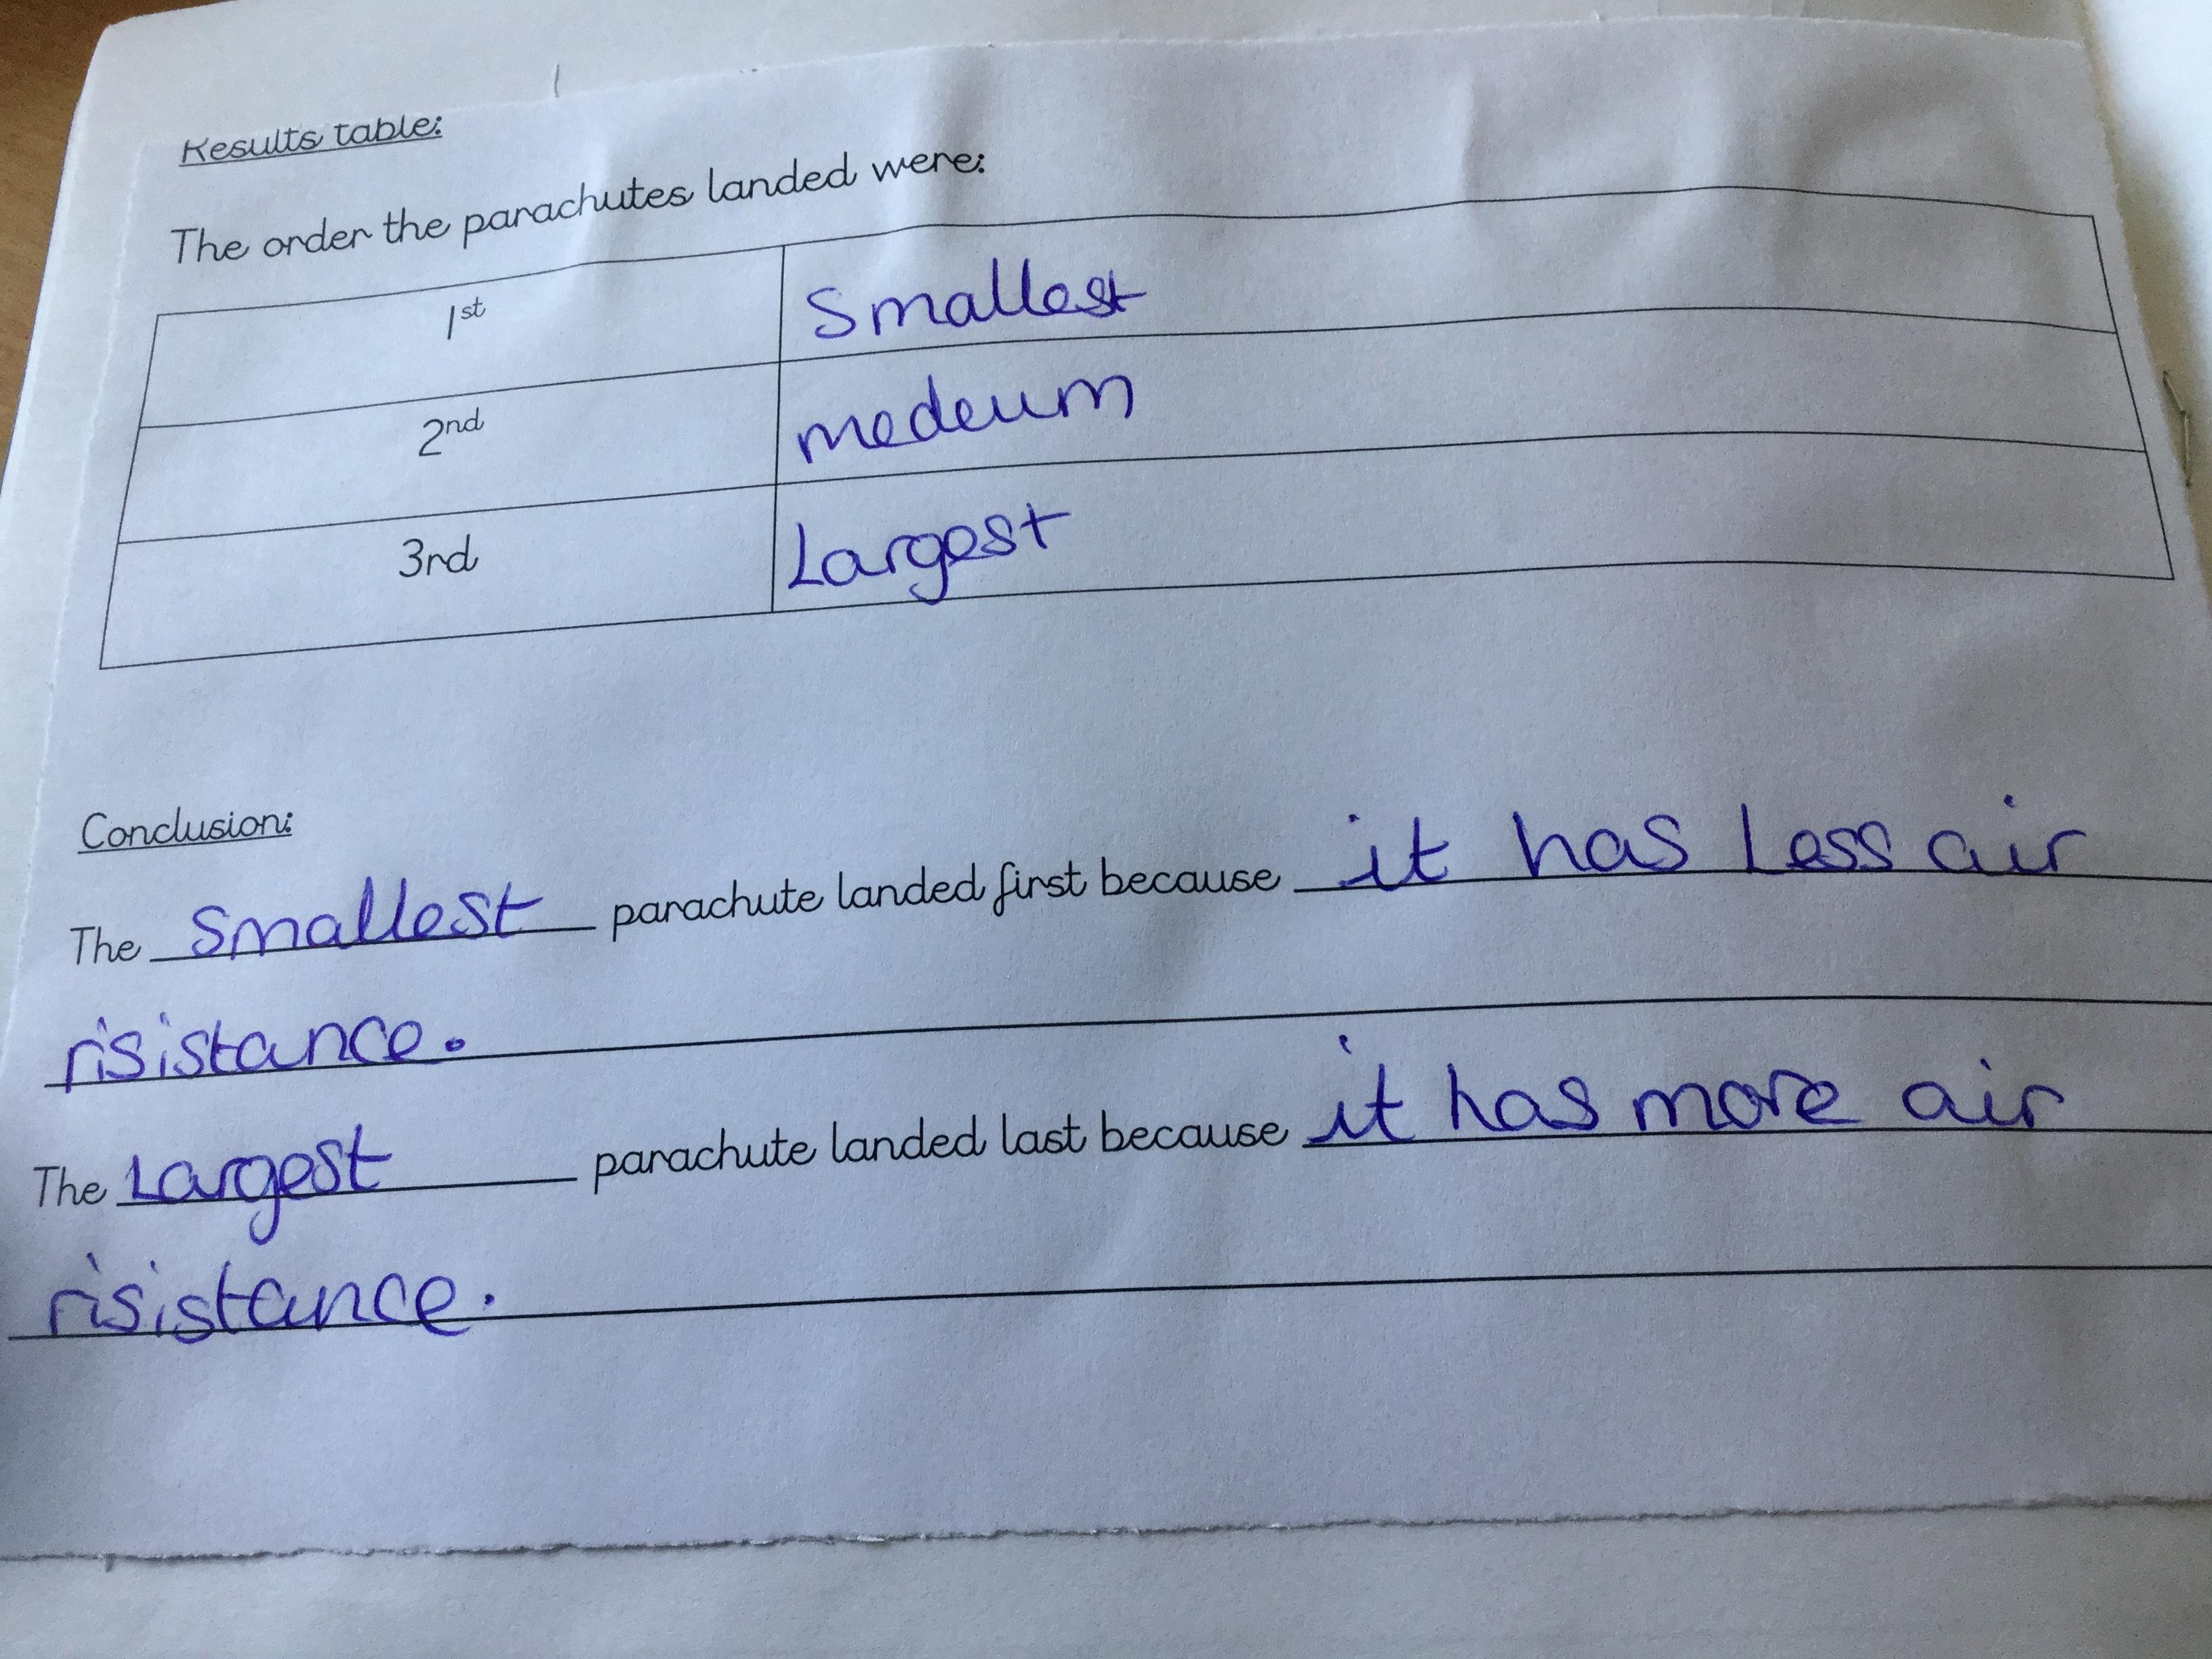 Results table:
The order the parachutes landed were:
1st Smallest
2nd medeum
3rd Largest
Conclusion:
The smallest parachute landed first because it has Less air
risistance.
The Largest parachute landed last because it has more air
risistance.